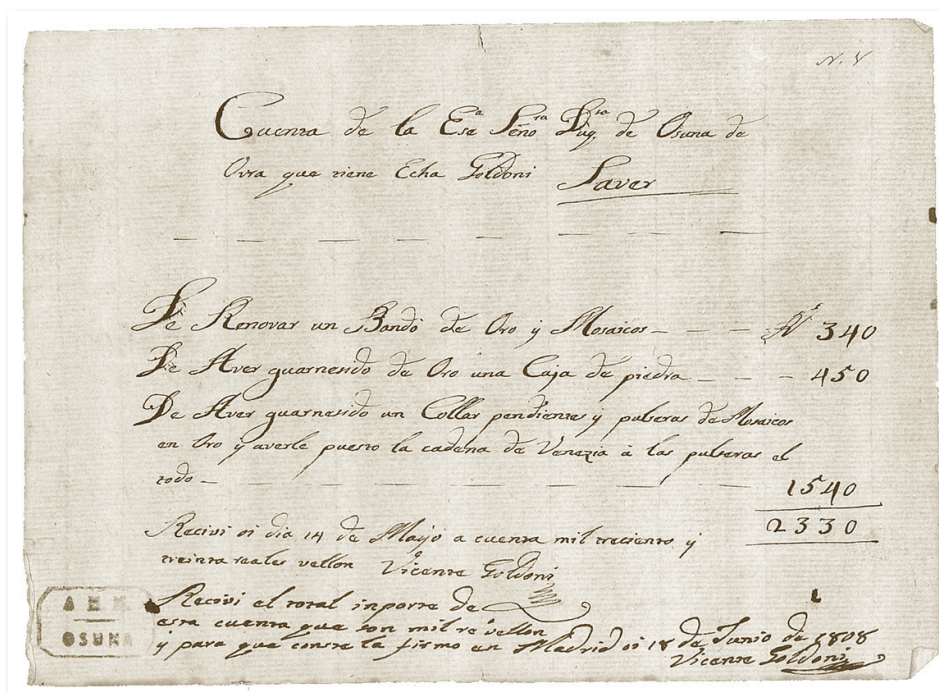 N. V
Cuenta de la Exa Señora Duqsa de Osuna de
Ovra que tiene Echa Goldoni Saver
De Renovar un Bando de Oro y Mosaicos - - - Rv 340
De Aver guarnesido de Oro una Caja de piedra - - - 450
De Aver guarnesido un Collar pendientes y pulseras de Mosaicos
en Oro y averle puesto la cadena de Venezia à las pulseras el
todo - 1540
2330
Recivi oi dia 14 de Mayo a cuenta mil treciento y
treinta reales vellon Vicente Goldoni
Recivi el total inporte de
esta cuenta que son mil rs vellon
y para que conste la firmo en Madrid oi 18 de Junio de 1808
Vicente Goldoni
A H N
OSUNA